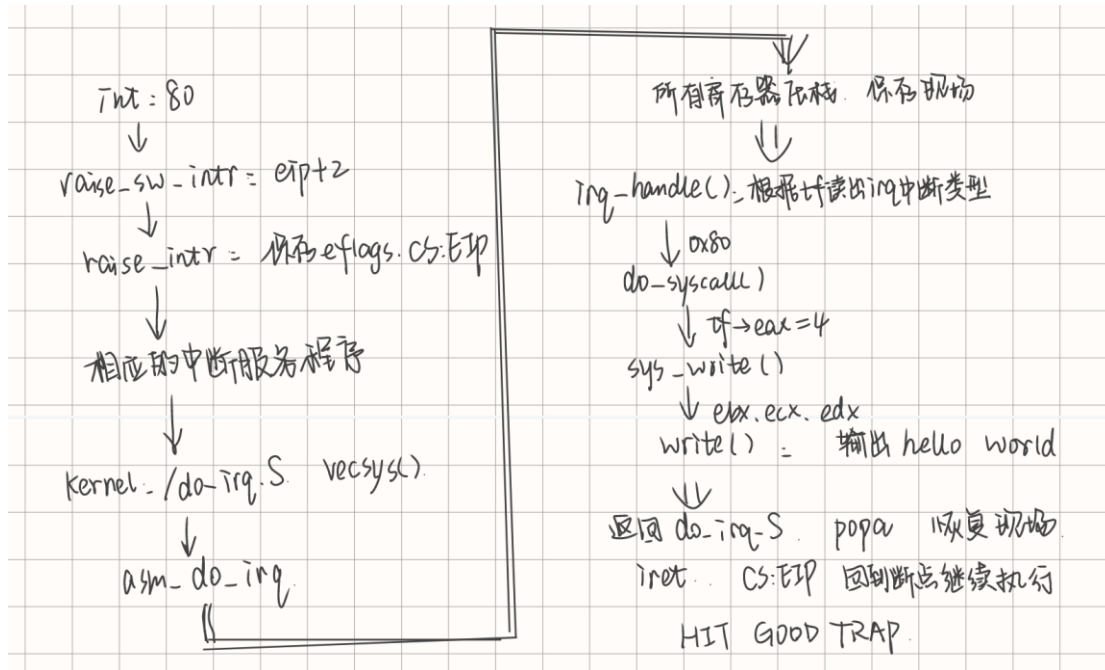 int: 80
raise_sw_intr: eip+2
raise_intr: 保存eflags. CS:EIP
相应的中断服务程序
Kernel: /do_irq.S vecsys().
asm_do_irq
所有寄存器压栈. 保存现场
irq_handle(): 根据tf读出irq中断类型
0x80
do_syscall()
tf→eax=4
sys_write()
ebx. ecx. edx
write() : 输出 hello world
返回 do_irq.S popa 恢复现场.
iret. CS:EIP 回到断点继续执行
HIT GOOD TRAP.